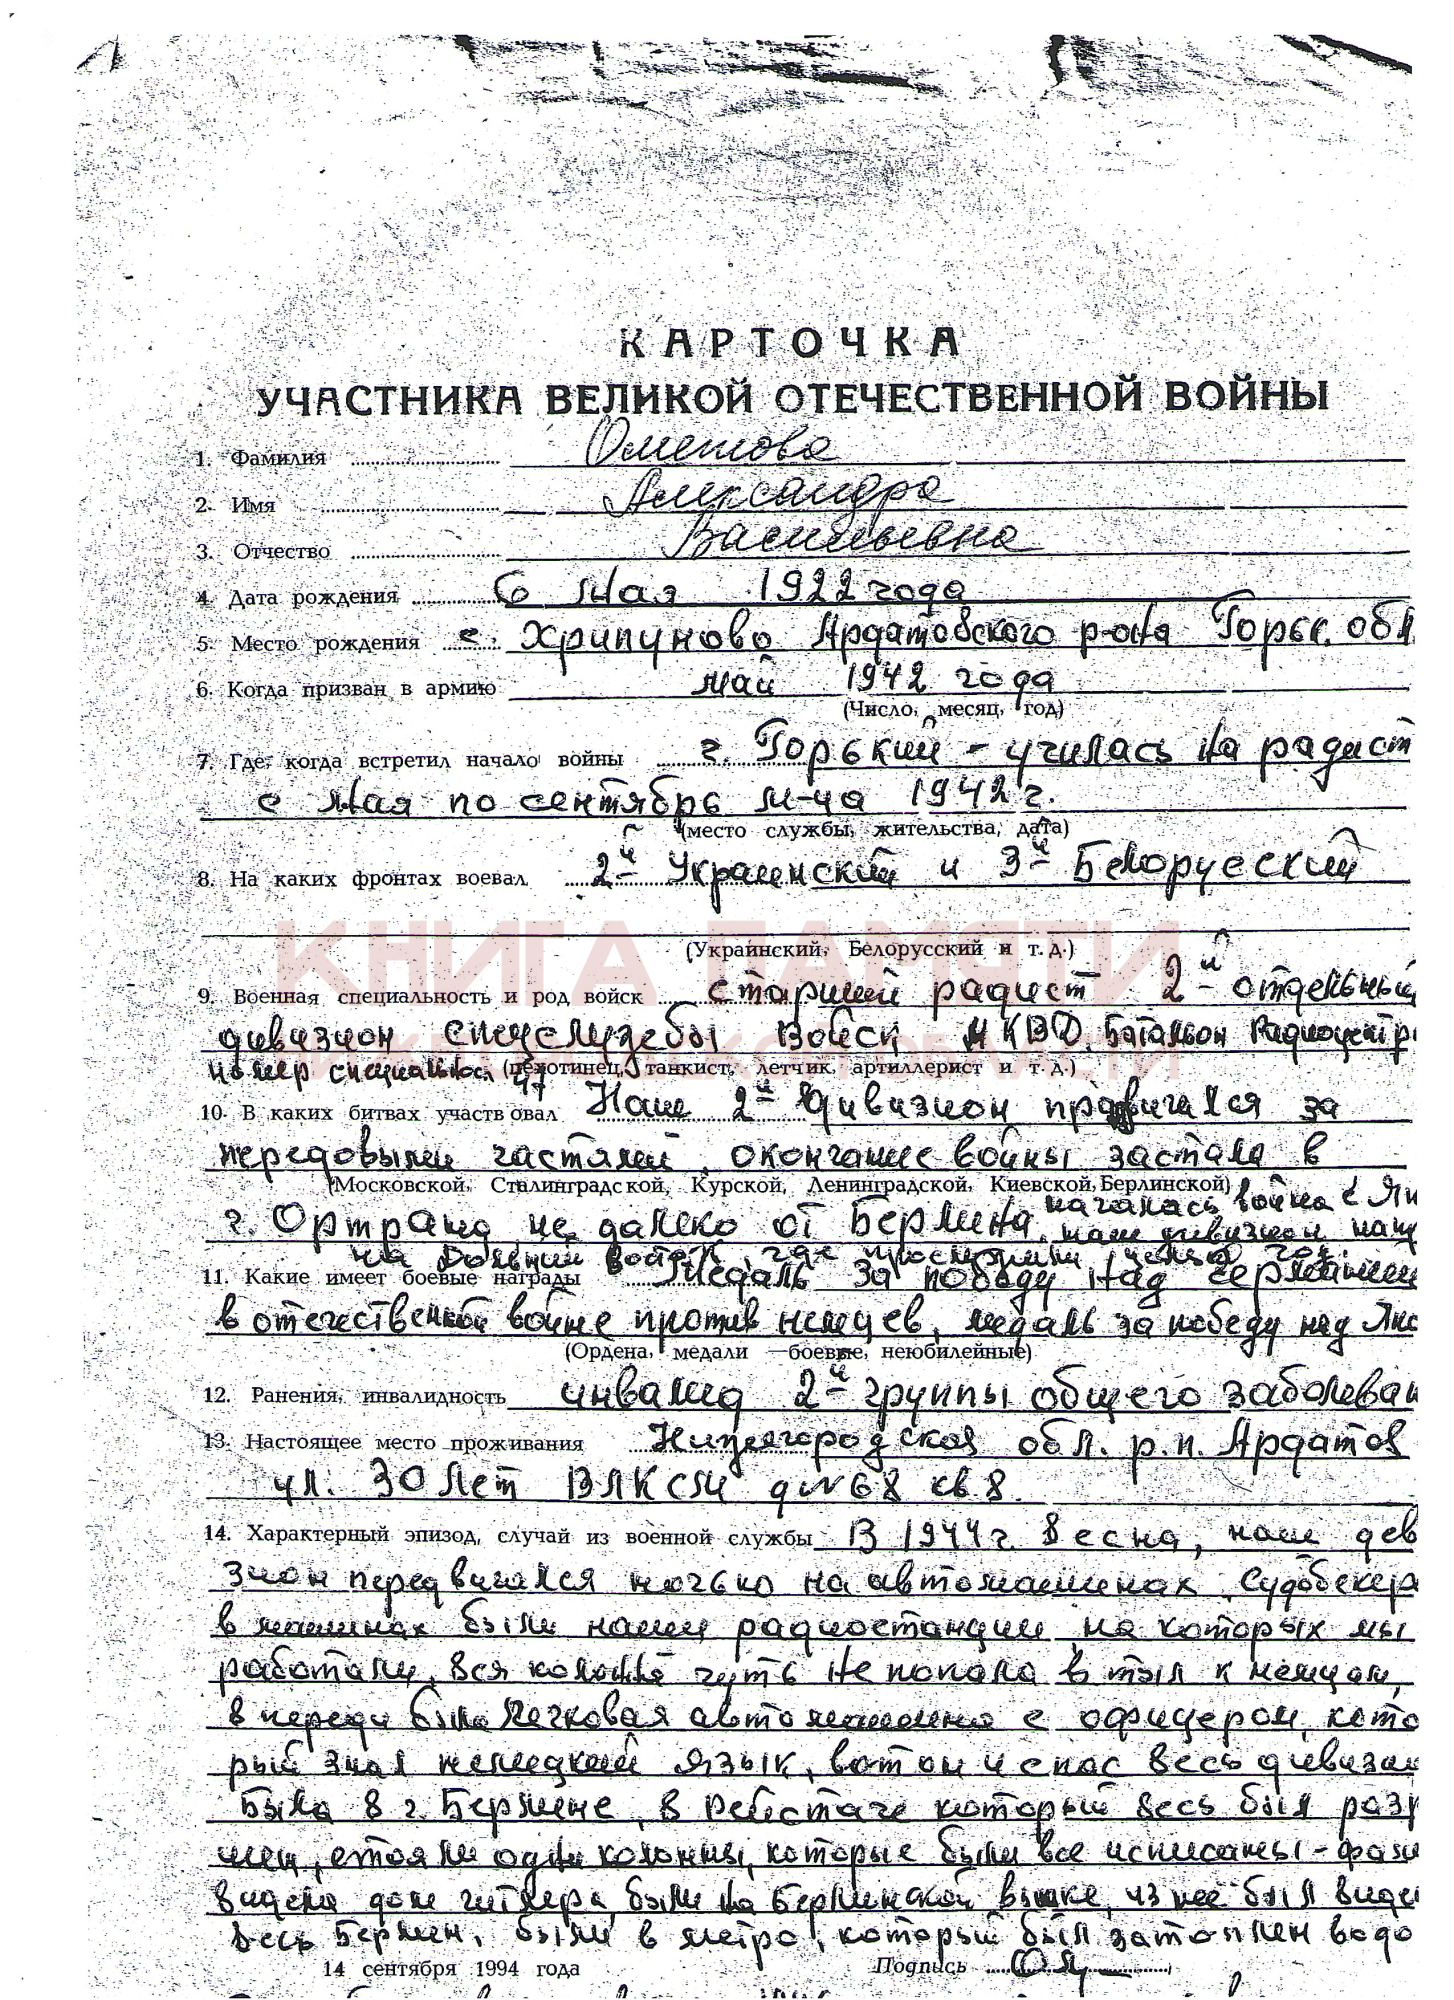 КАРТОЧКА
УЧАСТНИКА ВЕЛИКОЙ ОТЕЧЕСТВЕННОЙ ВОЙНЫ
1. Фамилия Ометова
2. Имя Александра
3. Отчество Васильевна
4. Дата рождения 6 мая 1922 года
5. Место рождения с. Хрипуново Ардатовского р-она Горьк. обл.
6. Когда призван в армию май 1942 года
(Число, месяц, год)
7. Где, когда встретил начало войны г. Горький - училась на радист
с мая по сентябрь м-ца 1942 г.
(место службы, жительства, дата)
8. На каких фронтах воевал 2й Украинский и 3й Белорусский
КНИГА ПАМЯТИ
(Украинский, Белорусский и т. д.)
9. Военная специальность и род войск старший радист 2й отдельный
дивизион спецслужбы войск НКВД. Батальон Радиоцентр
НИЖЕГОРОДСКОЙ ОБЛАСТИ
номер 47 (пехотинец, танкист, летчик, артиллерист и т. д.)
10. В каких битвах участвовал Наш 2й дивизион продвигался за
передовыми частями, окончание войны застала в
(Московской, Сталинградской, Курской, Ленинградской, Киевской, Берлинской)
г. Ортранд, не далеко от Берлина, началась война с Яп
наш дивизион
на Дальний восток, где целый год.
11. Какие имеет боевые награды Медаль за победу над германией
в отечественной войне против немцев, медаль за победу над Япо
(Ордена, медали — боевые, неюбилейные)
12. Ранения, инвалидность инвалид 2й группы общего заболеван
13. Настоящее место проживания Нижегородская обл. р.п. Ардатов
ул. 30 лет ВЛКСМ д №68 кв 8.
14. Характерный эпизод, случай из военной службы В 1944 г. весна, наш дев
зион передвигался ночью на автомашинах Судобекер
в машинах были наши радиостанции на которых мы
работали, вся колонна чуть не попала в тыл к немцам,
в переди была легковая автомашина с офицером, кото
рый знал немецкий язык, вот он и спас весь дивизи
Была в г. Берлине, в Рейстаге который весь был разр
шен, стояли одни колонны, которые были все исписаны -
видела дом гитлера, были на Берлинской вышке, из неё был виде
весь Берлин, были в метро, который был затоплен водо
14 сентября 1994 года Подпись